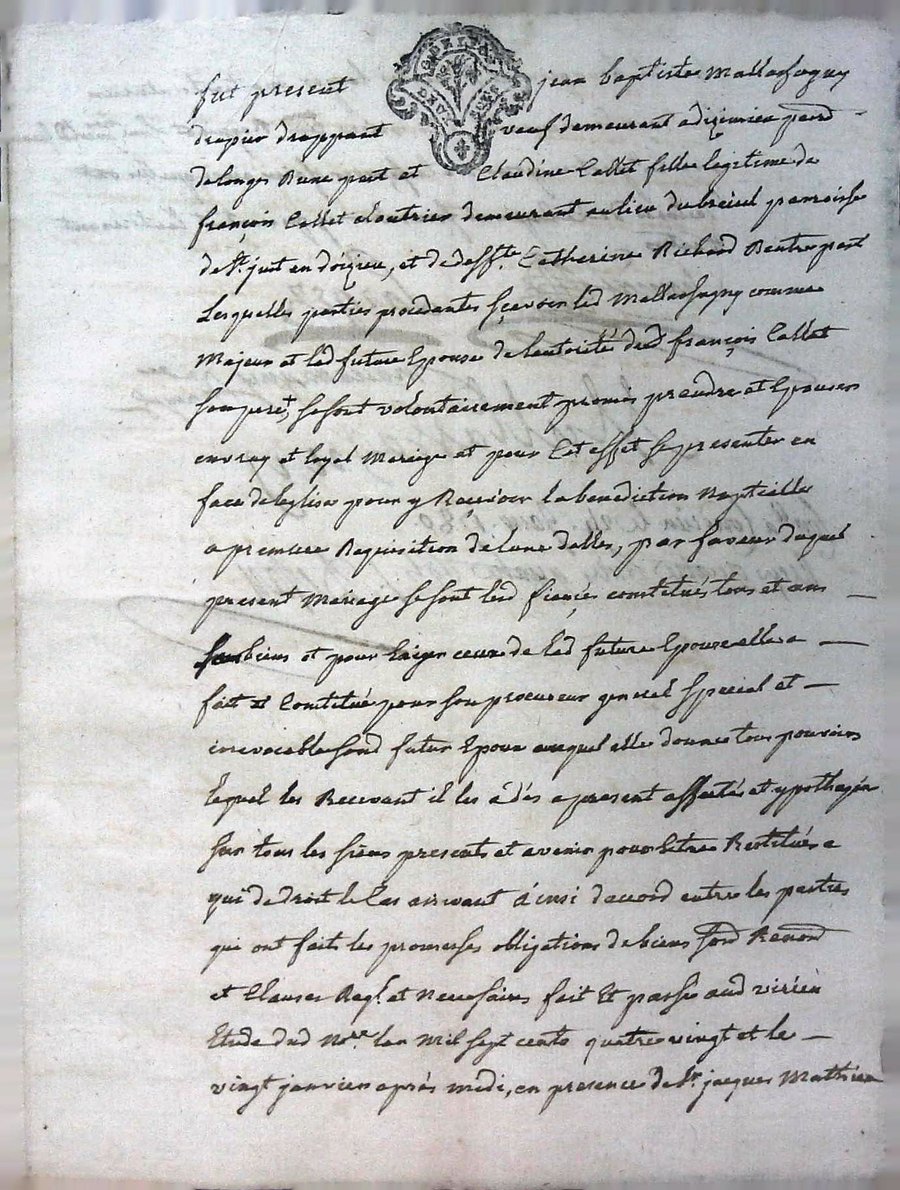 fut present jean baptiste Mallassagny
drapier drappant veuf demeurant a dizimieu parr
de longes Dune part et Claudine Collet fille legitime de
françois Collet cloutrier demeurant au lieu du breuil parroisse
de St. just en doizieu, et de deffte. Catherine Richard Dautre part
Lesquelles parties procedantes sçavoir led Mallassagny comme
Majeur et lad future Epouse de lautorité dud françois Collet
son pere, se sont volontairement promis prendre et Epouser
en vray et loyal Mariage et pour Cet effet se presenter en
face de leglise pour y Recevoir la benediction Nuptialle
a premiere Requisition de lune delles, par faveur duquel
present Mariage se sont lesd fiancés constitués tous et uns
biens et pour Exiger ceux de lad future Epouse elle a
fait et Constitué pour son procureur general special et
irrevocable sond futur Epoux auquel elle donne tous pouvoirs
lequel les Recevant il les a dès a present affectés et ypothequés
sur tous les siens presents et avenir pour Etre Restitués a
qui de droit le Cas arrivant ainsi daccord entre les parties
qui ont faits les promesses obligations de biens Renon
et Clauses Reql. et Necessaires fait Et passé aud virieu
Etude dud Nre. lan Mil sept cents quatre vingt et le
vingt janvier après midi, en presence de Sr. jacques Mathieu